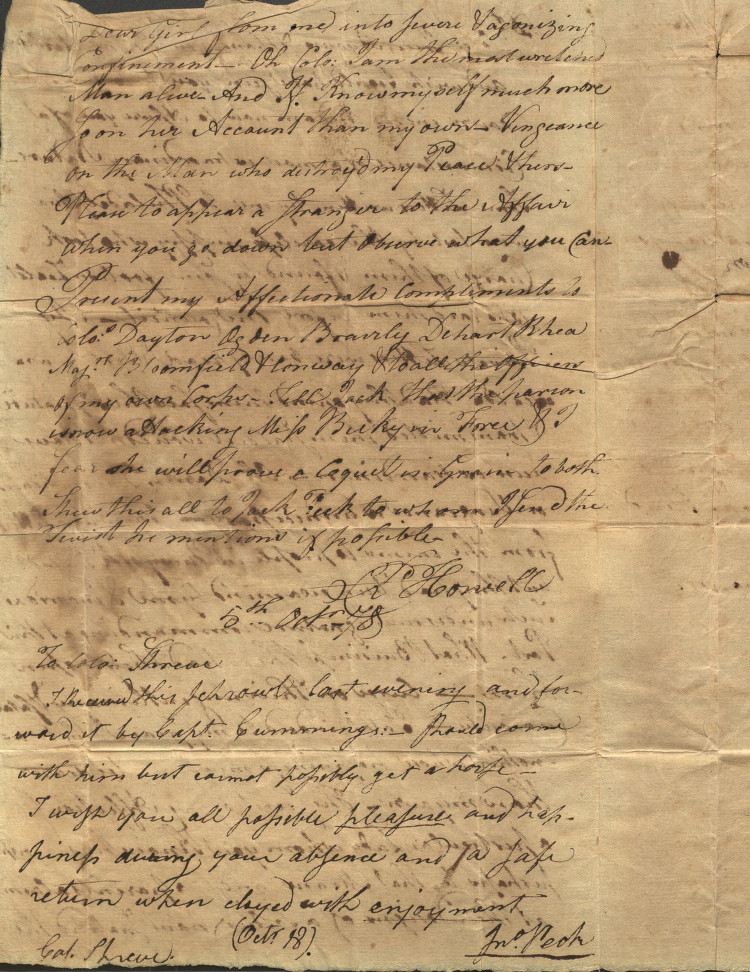 Dear Girl from me into severe & agonizing
Confinement – Oh Colo: I am the most wretched
Man alive – And Knowmyself much more
so on her Account than my own – Vengeance
on the Man who destroyd my Peace & hers –
Please to appear a Stranger to the Affair
when you go down but observe what you Can –
Present my Affectionate Compliments to
Colo.s Dayton Ogden Dehart Rhea
Maj.rs Bloomfield & Conway & to all the Officers
of my own Corps – Tell Jack that the parson
is now attacking Miss Becky in Force & I
fear she will prove a Coquet in Grain to both
Shew this all to Jack Peck to whom I send the
he mentions if possible –
Howell
5th Octor 78
To Colo: Shreve
I Received this last evening and for-
ward it by Capt. Cummings: – Should come
with him but cannot possibly get a horse –
I wish you all possible pleasure and hap-
piness during your absence and a safe
return when cloyed with enjoyment
(Octr 78). Jno. Peck
Col. Shreve.